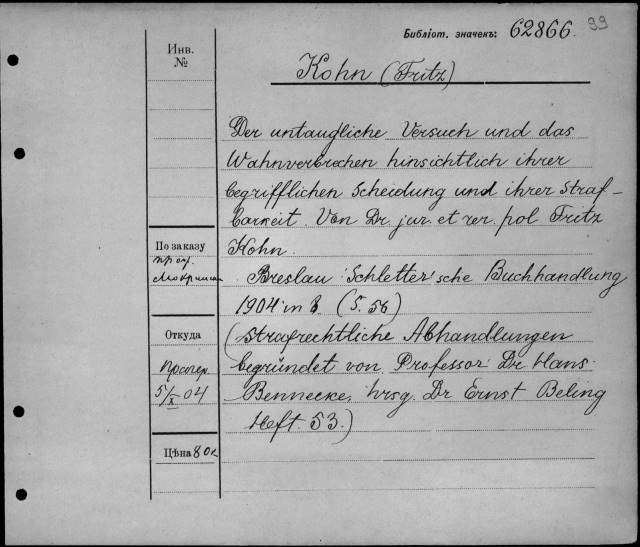 Библіот. значекъ: 62866. 99
Инв.
№
Kohn (Fritz)
Der untaugliche Versuch und das
Wahnverbrechen hinsichtlich ihrer
begrifflichen Scheidung und ihrer Straf-
barkeit. Von Dr. jur. et rer. pol Fritz
Kohn.
По заказу
проф.
Breslau Schletter'sche Buchhandlung
1904 in 8 (S. 56)
Откуда
5/X 04
(Strafrechtliche Abhandlungen
begründet von Professor Dr. Hans
Bennecke, hrsg. Dr Ernst Beling
Heft. 53.)
Цѣна 80к